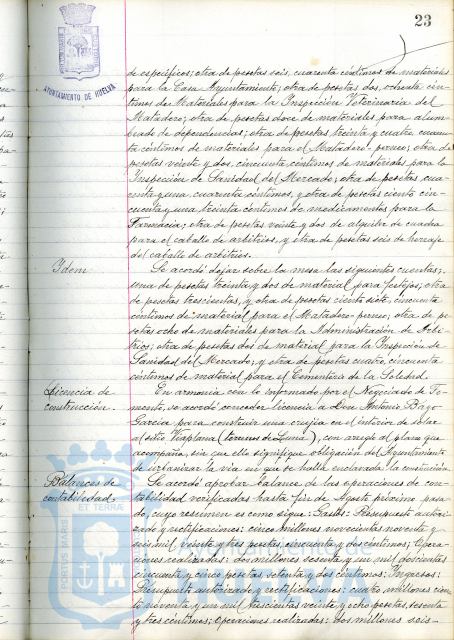 23
AYUNTAMIENTO DE HUELVA
de específicos; otra de pesetas seis, cuarenta céntimos de materiales
para la Casa Ayuntamiento; otra de pesetas dos ochenta cén-
timos de materiales para la Inspección Veterinaria del
Matadero; otra de pesetas doce de materiales para alum-
brado de dependencias; otra de pesetas treinta y cuatro cuaren-
ta céntimos de materiales para el Matadero-perneo; otra de
pesetas veinte y dos, cincuenta céntimos de materiales para la
Inspección de Sanidad del Mercado; otra de pesetas cua-
renta y una, cuarenta céntimos, y otra de pesetas ciento cin-
cuenta y una treinta céntimos de medicamentos para la
Farmacia; otra de pesetas veinte y dos de alquiler de cuadra
para el caballo de arbitrios, y otra de pesetas seis de herraje
del caballo de arbitrios.
Idem
Se acordó dejar sobre la mesa las siguientes cuentas:
una de pesetas treinta y dos de material para festejos; otra
de pesetas trescientas, y otra de pesetas ciento siete, cincuenta
céntimos de material para el Matadero-perneo; otra de pe-
setas ocho de materiales para la Administración de Arbi-
trios; otra de pesetas dos de material para la Inspección de
Sanidad del Mercado; y otra de pesetas cuatro, cincuenta
céntimos de material para el Cementerio de la Soledad.
Licencia de
construcción.
En armonía con lo informado por el Negociado de Fo-
mento, se acordó conceder licencia a Don Antonio Bago
García para construir una crujía en el interior de solar
al sitio Viaplana (terrenos de Luna), con arreglo al plano que
acompaña, sin que ello signifique obligación del Ayuntamiento
de urbanizar la vía en que se halla enclavada la construcción
Balances de
contabilidad.
Se acordó aprobar balance de las operaciones de con-
tabilidad verificadas hasta fin de Agosto próximo pasa-
do, cuyo resumen es como sigue: Gastos: Presupuesto autori-
zado y rectificaciones: cinco millones novecientos noventa y
seis mil veinte y tres pesetas, cincuenta y dos céntimos; Opera-
ciones realizadas: dos millones sesenta y un mil doscientas
cincuenta y cinco pesetas, setenta y dos céntimos; Ingresos:
Presupuesto autorizado y rectificaciones: cuatro millones cien-
to noventa y un mil trescientas veinte y ocho pesetas, sesenta
y tres céntimos; Operaciones realizadas: dos millones seis-
PORTUS MARIS
ET TERRAE
Ayuntamiento de